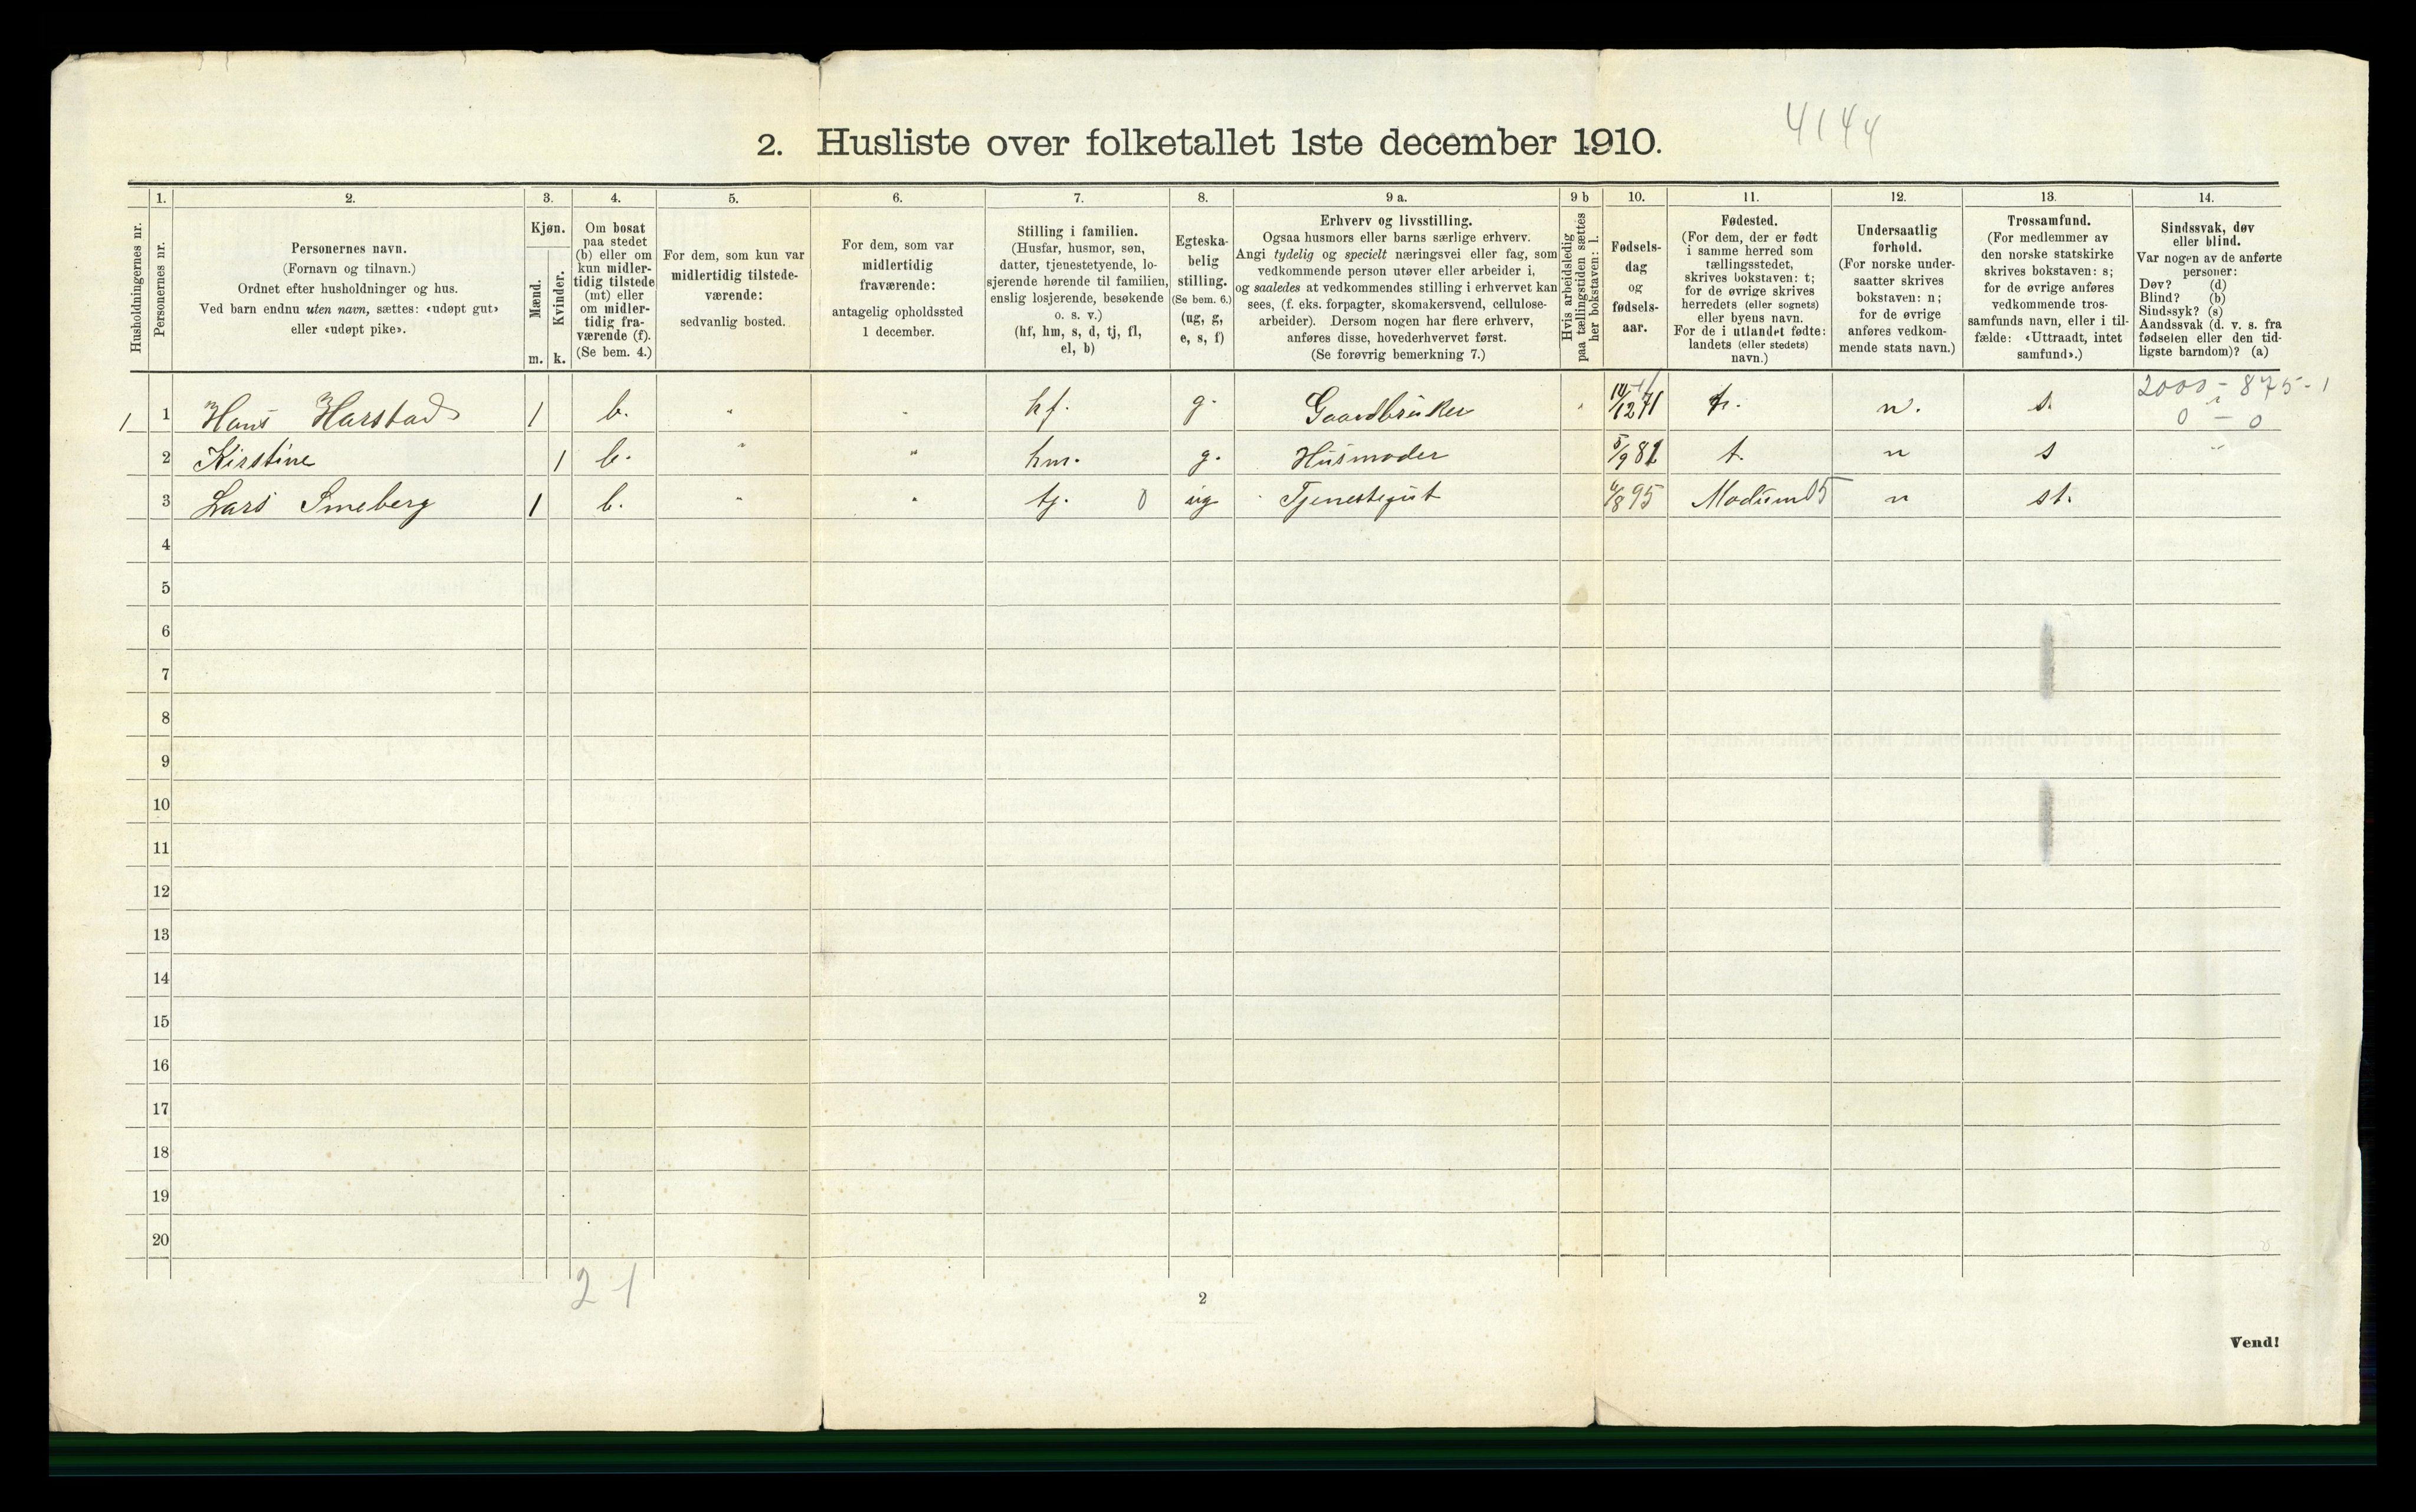 4144
2. Husliste over folketallet 1ste december 1910.
1. 2. 3. 4. 5. 6. 7. 8. 9 a. 9 b 10. 11. 12. 13. 14.
Husholdningernes nr.
Personernes nr.
Personernes navn.
(Fornavn og tilnavn.)
Ordnet efter husholdninger og hus.
Ved barn endnu uten navn, sættes: «udøpt gut»
eller «udøpt pike».
Kjøn.
Mænd.
Kvinder.
m. k.
Om bosat
paa stedet
(b) eller om
kun midler-
tidig tilstede
(mt) eller
om midler-
tidig fra-
værende (f).
(Se bem. 4.)
For dem, som kun var
midlertidig tilstede-
værende:
sedvanlig bosted.
For dem, som var
midlertidig
fraværende:
antagelig opholdssted
1 december.
Stilling i familien.
(Husfar, husmor, søn,
datter, tjenestetyende, lo-
sjerende hørende til familien,
enslig losjerende, besøkende
o. s. v.)
(hf, hm, s, d, tj, fl,
el, b)
Egteska-
belig
stilling.
(Se bem. 6.)
(ug, g,
e, s, f)
Erhverv og livsstilling.
Ogsaa husmors eller barns særlige erhverv.
Angi tydelig og specielt næringsvei eller fag, som
vedkommende person utøver eller arbeider i,
og saaledes at vedkommendes stilling i erhvervet kan
sees, (f. eks. forpagter, skomakersvend, cellulose-
arbeider). Dersom nogen har flere erhverv,
anføres disse, hovederhvervet først.
(Se forøvrig bemerkning 7.)
Hvis arbeidsledig
paa tællingstiden sættes
her bokstaven: l.
Fødsels-
dag
og
fødsels-
aar.
Fødested.
(For dem, der er født
i samme herred som
tællingsstedet,
skrives bokstaven: t;
for de øvrige skrives
herredets (eller sognets)
eller byens navn.
For de i utlandet fødte:
landets (eller stedets)
navn.)
Undersaatlig
forhold.
(For norske under-
saatter skrives
bokstaven: n;
for de øvrige
anføres vedkom-
mende stats navn.)
Trossamfund.
(For medlemmer av
den norske statskirke
skrives bokstaven: s;
for de øvrige anføres
vedkommende tros-
samfunds navn, eller i til-
fælde: «Uttraadt, intet
samfund».)
Sindssvak, døv
eller blind.
Var nogen av de anførte
personer:
Døv? (d)
Blind? (b)
Sindssyk? (s)
Aandssvak (d. v. s. fra
fødselen eller den tid-
ligste barndom)? (a)
2000 - 875 - 1
1 1 Hans Harstad 1 b. " " hf. g. Gaardbruker " 71 t. n. s. 0 - 0
2 Kirstine 1 b. " " hm. g. Husmoder 5/9 81 t. n s "
3 Lars Smeberg 1 b. " " tj. 0 ug Tjenestegut 6/8 95 Modum 05 n st.
4
5
6
7
8
9
10
11
12
13
14
15
16
17
18
19
20
2 1
2
Vend!